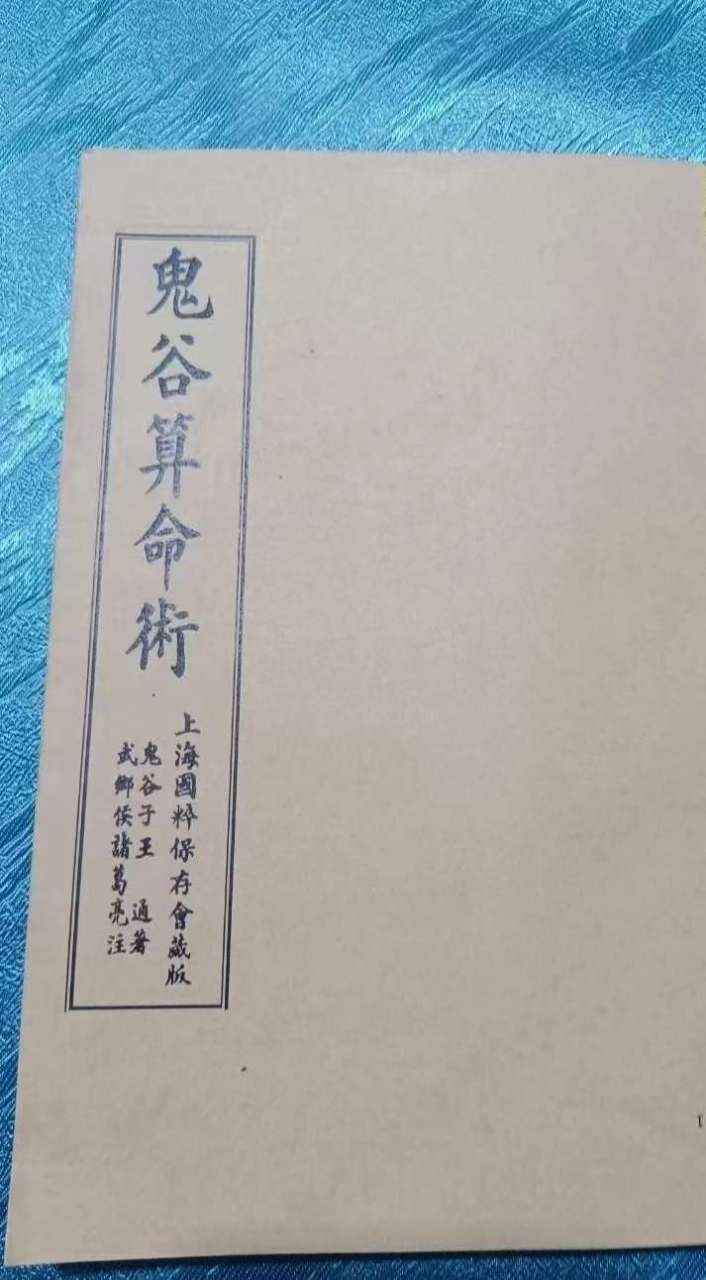 鬼谷算命術
上海國粹保存會藏版
鬼谷子王通著
武鄉侯諸葛亮注
1